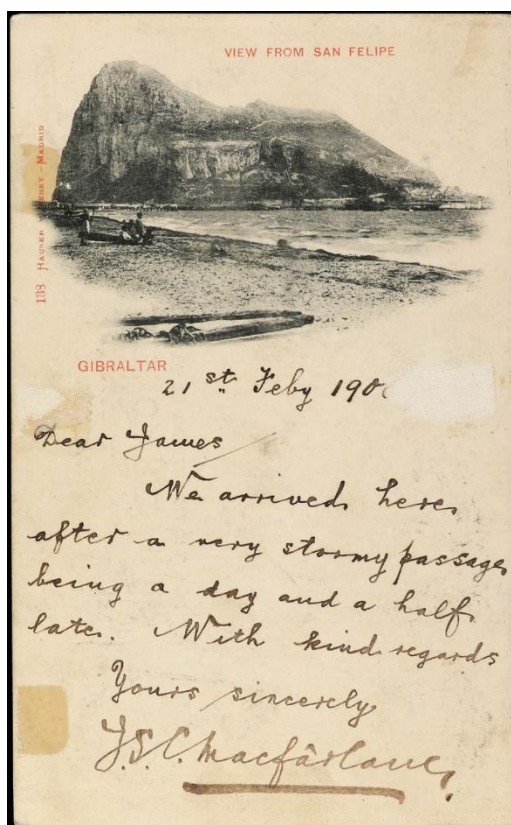 VIEW FROM SAN FELIPE
138 HAUSER MENET - MADRID
GIBRALTAR
21st Feby
Dear James
We arrived here
after a very stormy passage
being a day and a half
late. With kind regards
Yours sincerely
J.S.C. Macfarlane